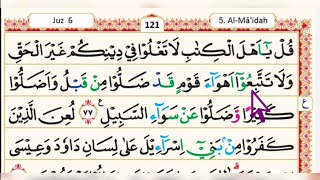 Juz 6
121
5. Al-Mâ'idah
قُلْ يٰٓاَهْلَ الْكِتٰبِ لَا تَغْلُوْا فِيْ دِيْنِكُمْ غَيْرَ الْحَقِّ
وَلَا تَتَّبِعُوْٓا اَهْوَاۤءَ قَوْمٍ قَدْ ضَلُّوْا مِنْ قَبْلُ وَاَضَلُّوْا
وَّضَلُّوْا عَنْ سَوَاۤءِ السَّبِيْلِ ࣖ ٧٧ لُعِنَ الَّذِيْنَ
كَفَرُوْا مِنْۢ بَنِيْٓ اِسْرَاۤءِيْلَ عَلٰى لِسَانِ دَاوٗدَ وَعِيْسَى